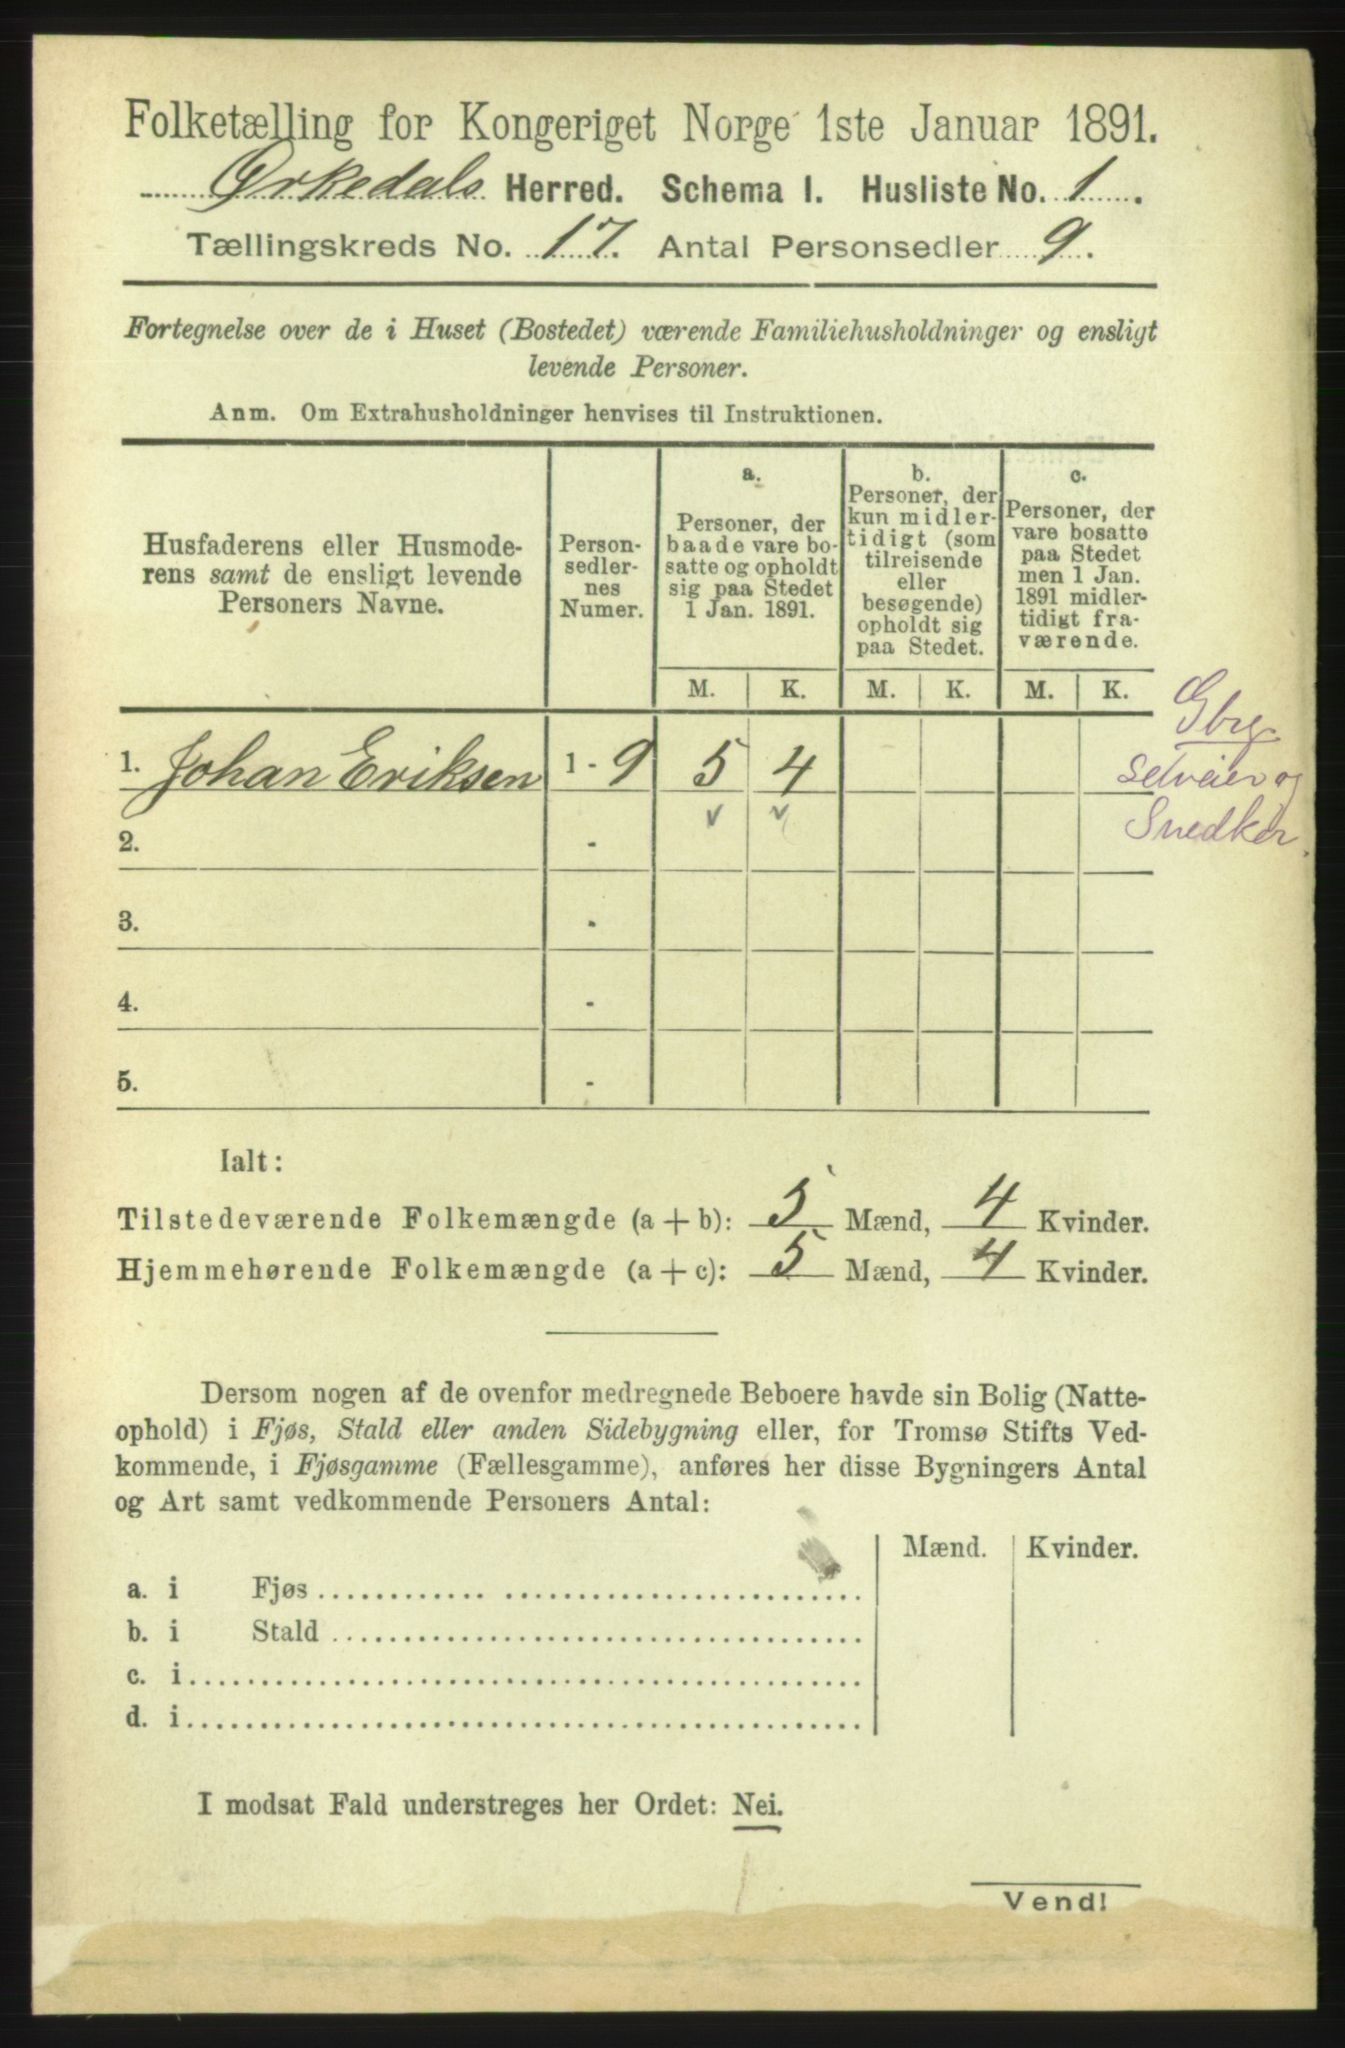 Folketælling for Kongeriget Norge 1ste Januar 1891.
Ørkedals Herred. Schema 1. Husliste No. 1.
Tællingskreds No. 17. Antal Personsedler 9.
Fortegnelse over de i Huset (Bostedet) værende Familiehusholdninger og ensligt
levende Personer.
Anm. Om Extrahusholdninger henvises til Instruktionen.
Husfaderens eller Husmode-
rens samt de ensligt levende
Personers Navne.
Person-
sedler-
nes
Numer.
a.
Personer, der
baade vare bo-
satte og opholdt
sig paa Stedet
1 Jan. 1891.
b.
Personer, der
kun midler-
tidigt (som
tilreisende
eller
besøgende)
opholdt sig
paa Stedet.
c.
Personer, der
vare bosatte
paa Stedet
men 1 Jan.
1891 midler-
tidigt fra-
værende.
M. K. M. K. M. K.
1. Johan Eriksen 1 - 9 5 4
Gbr.
Selveier og
Snedker.
2. -
3. -
4. -
5. -
Ialt:
Tilstedeværende Folkemængde (a + b): 5 Mænd, 4 Kvinder.
Hjemmehørende Folkemængde (a + c): 5 Mænd, 4 Kvinder.
Dersom nogen af de ovenfor medregnede Beboere havde sin Bolig (Natte-
ophold) i Fjøs, Stald eller anden Sidebygning eller, for Tromsø Stifts Ved-
kommende, i Fjøsgamme (Fællesgamme), anføres her disse Bygningers Antal
og Art samt vedkommende Personers Antal:
Mænd. Kvinder.
a. i Fjøs
b. i Stald
c. i
d. i
I modsat Fald understreges her Ordet: Nei.
Vend!